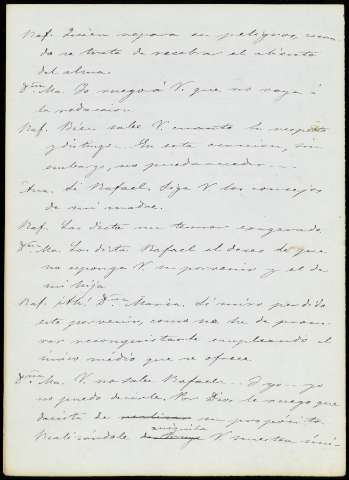 Raf. Quien repara en peligros, cuan-
do se trata de recobrar el aliento
del alma.
Dña Ma. Yo ruego á V. que no vaya á
la redaccion
Raf. Bien sabe V. cuanto la respeto
y distingo. En esta ocasion, sin
embargo, no puedo acceder...
Ana. Si Rafael. Siga V los consejos
de mi madre.
Raf. Los dicta un temor exagerado.
Dña Ma. Los dicta Rafael el deseo de que
no esponga V. su porvenir y el de
mi hija.
Raf. Ah! Dña Maria. Si miro perdido
este porvenir, como no he de procu-
rar reconquistarle empleando el
único medio que se ofrece.
Dña Ma. V. no sabe Rafael... Y yo... yo
no puedo decirle. Por Dios le ruego que
desista de realizar su proposito.
aniquila
Realizándole V nuestra úni-